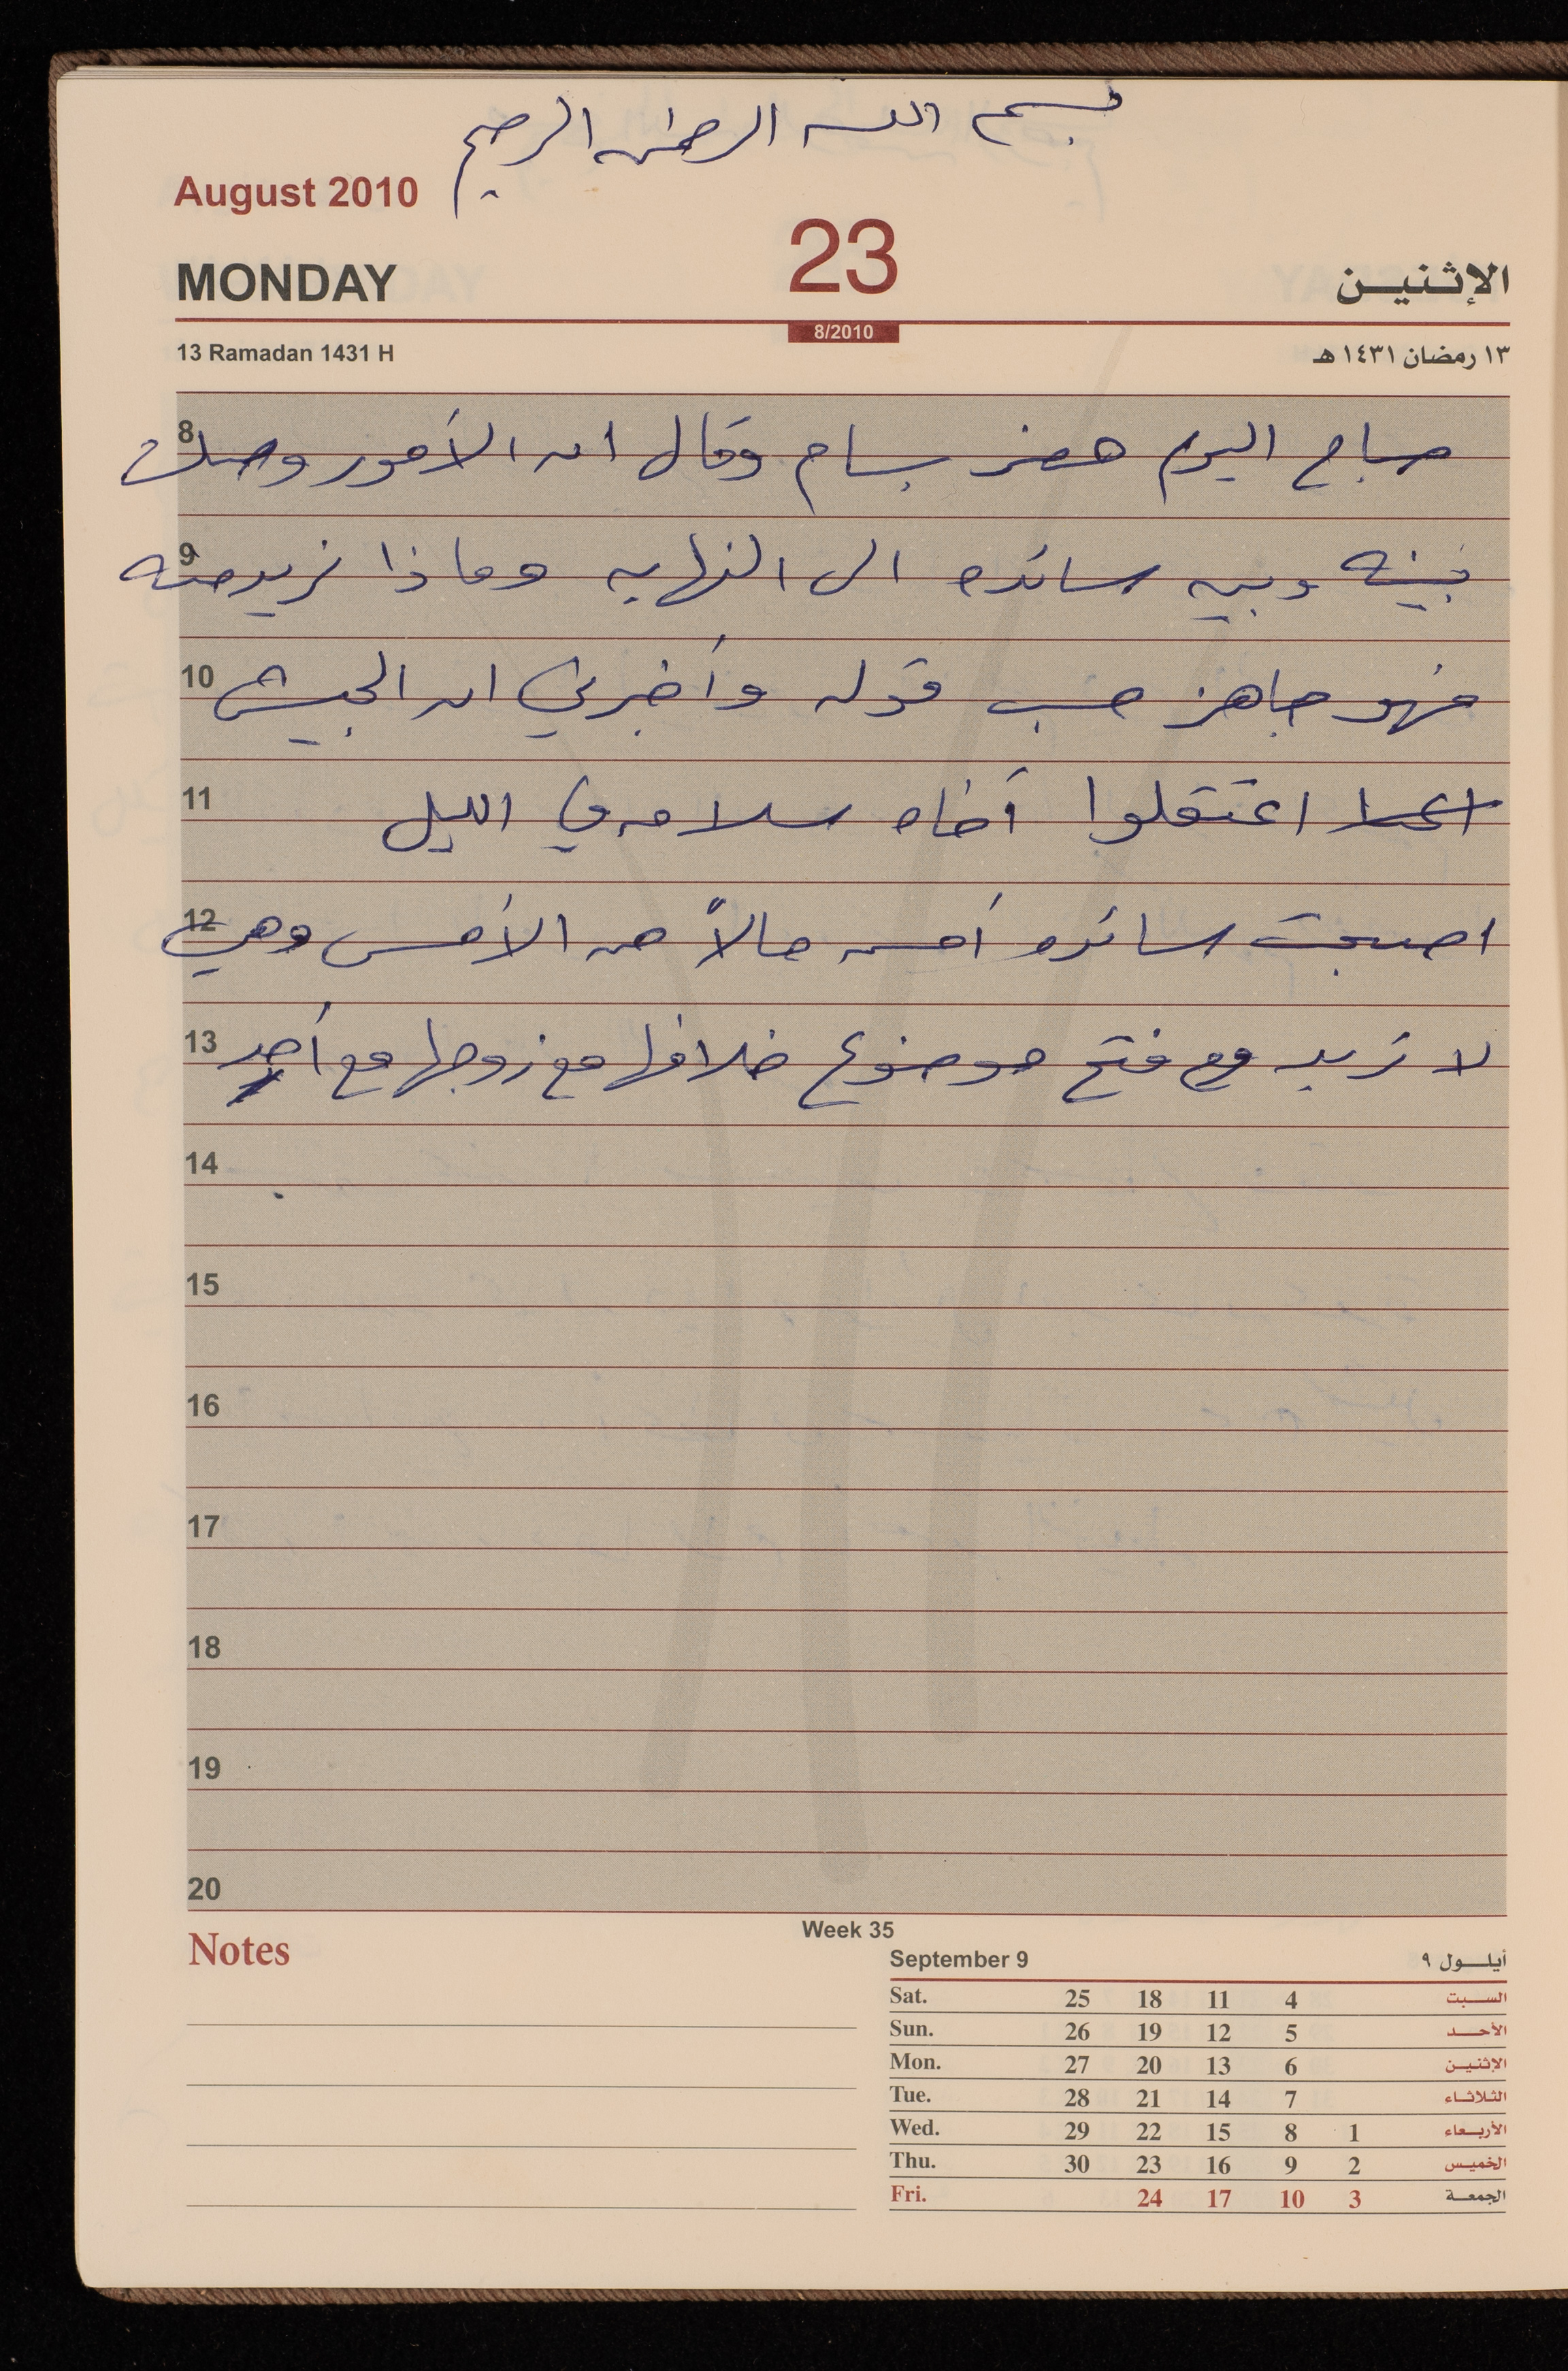 بسم الله الرحمن الرحيم
August 2010
MONDAY 23 الإثنين
8/2010
13 Ramadan 1431 H ١٣ رمضان ١٤٣١ هـ
8 صباح اليوم حضر بسام وقال ان الأمور وصلت
9 بينه وبين سائده الى النهايه وماذا نريد منه
10 فهو جاهز حسب قوله وأخبرني ان الجيش
11 اعتقلوا أخاه سلامه في الليل
12 اصبحت سائده أحسن حالاً من الأمس وهي
13 لا تريد فتح موضوع خلافها مع زوجها مع أحد
14
15
16
17
18
19
20
Notes
Week 35
September 9 أيلول ٩
Sat. 25 18 11 4 السبت
Sun. 26 19 12 5 الأحد
Mon. 27 20 13 6 الإثنين
Tue. 28 21 14 7 الثلاثاء
Wed. 29 22 15 8 1 الأربعاء
Thu. 30 23 16 9 2 الخميس
Fri. 24 17 10 3 الجمعة